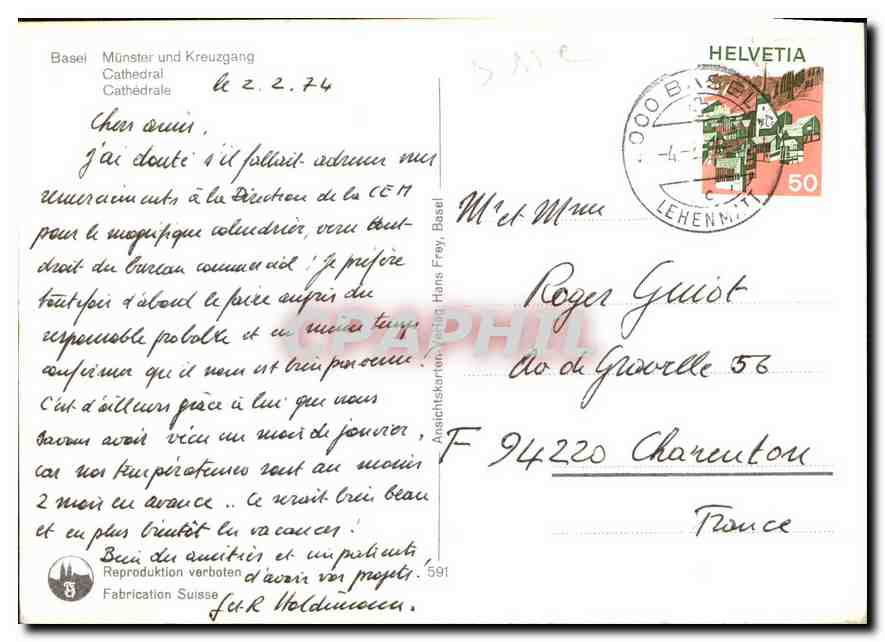 Basel Münster und Kreuzgang
Cathedral
Cathédrale
le 2.2.74
Chers amis,
J'ai douté s'il fallait adresser nos
remerciements à la Direction de la CEM
pour le magnifique calendrier, venu tout-
droit du bureau commercial! Je préfère
toutefois d'abord le faire auprès du
responsable probable et en même temps
confirmer qu'il nous est bien parvenu!
C'est d'ailleurs grâce à lui que nous
savons avoir vécu un mois de janvier,
car nos températures sont au moins
2 mois en avance .. Ce serait bien beau
et en plus bientôt les vacances!
Bien des amitiés et impatients
d'avoir vos projets!
J et R Waldmann.
Reproduktion verboten
Fabrication Suisse
591
Ansichtskarten-Verlag Hans Frey, Basel
HELVETIA
50
4000 BASEL
-4.
C
LEHENMATT
Mr et Mme
Roger Guiot
Av de Gravelle 56
F 94220 Charenton
France
CPAPHIL